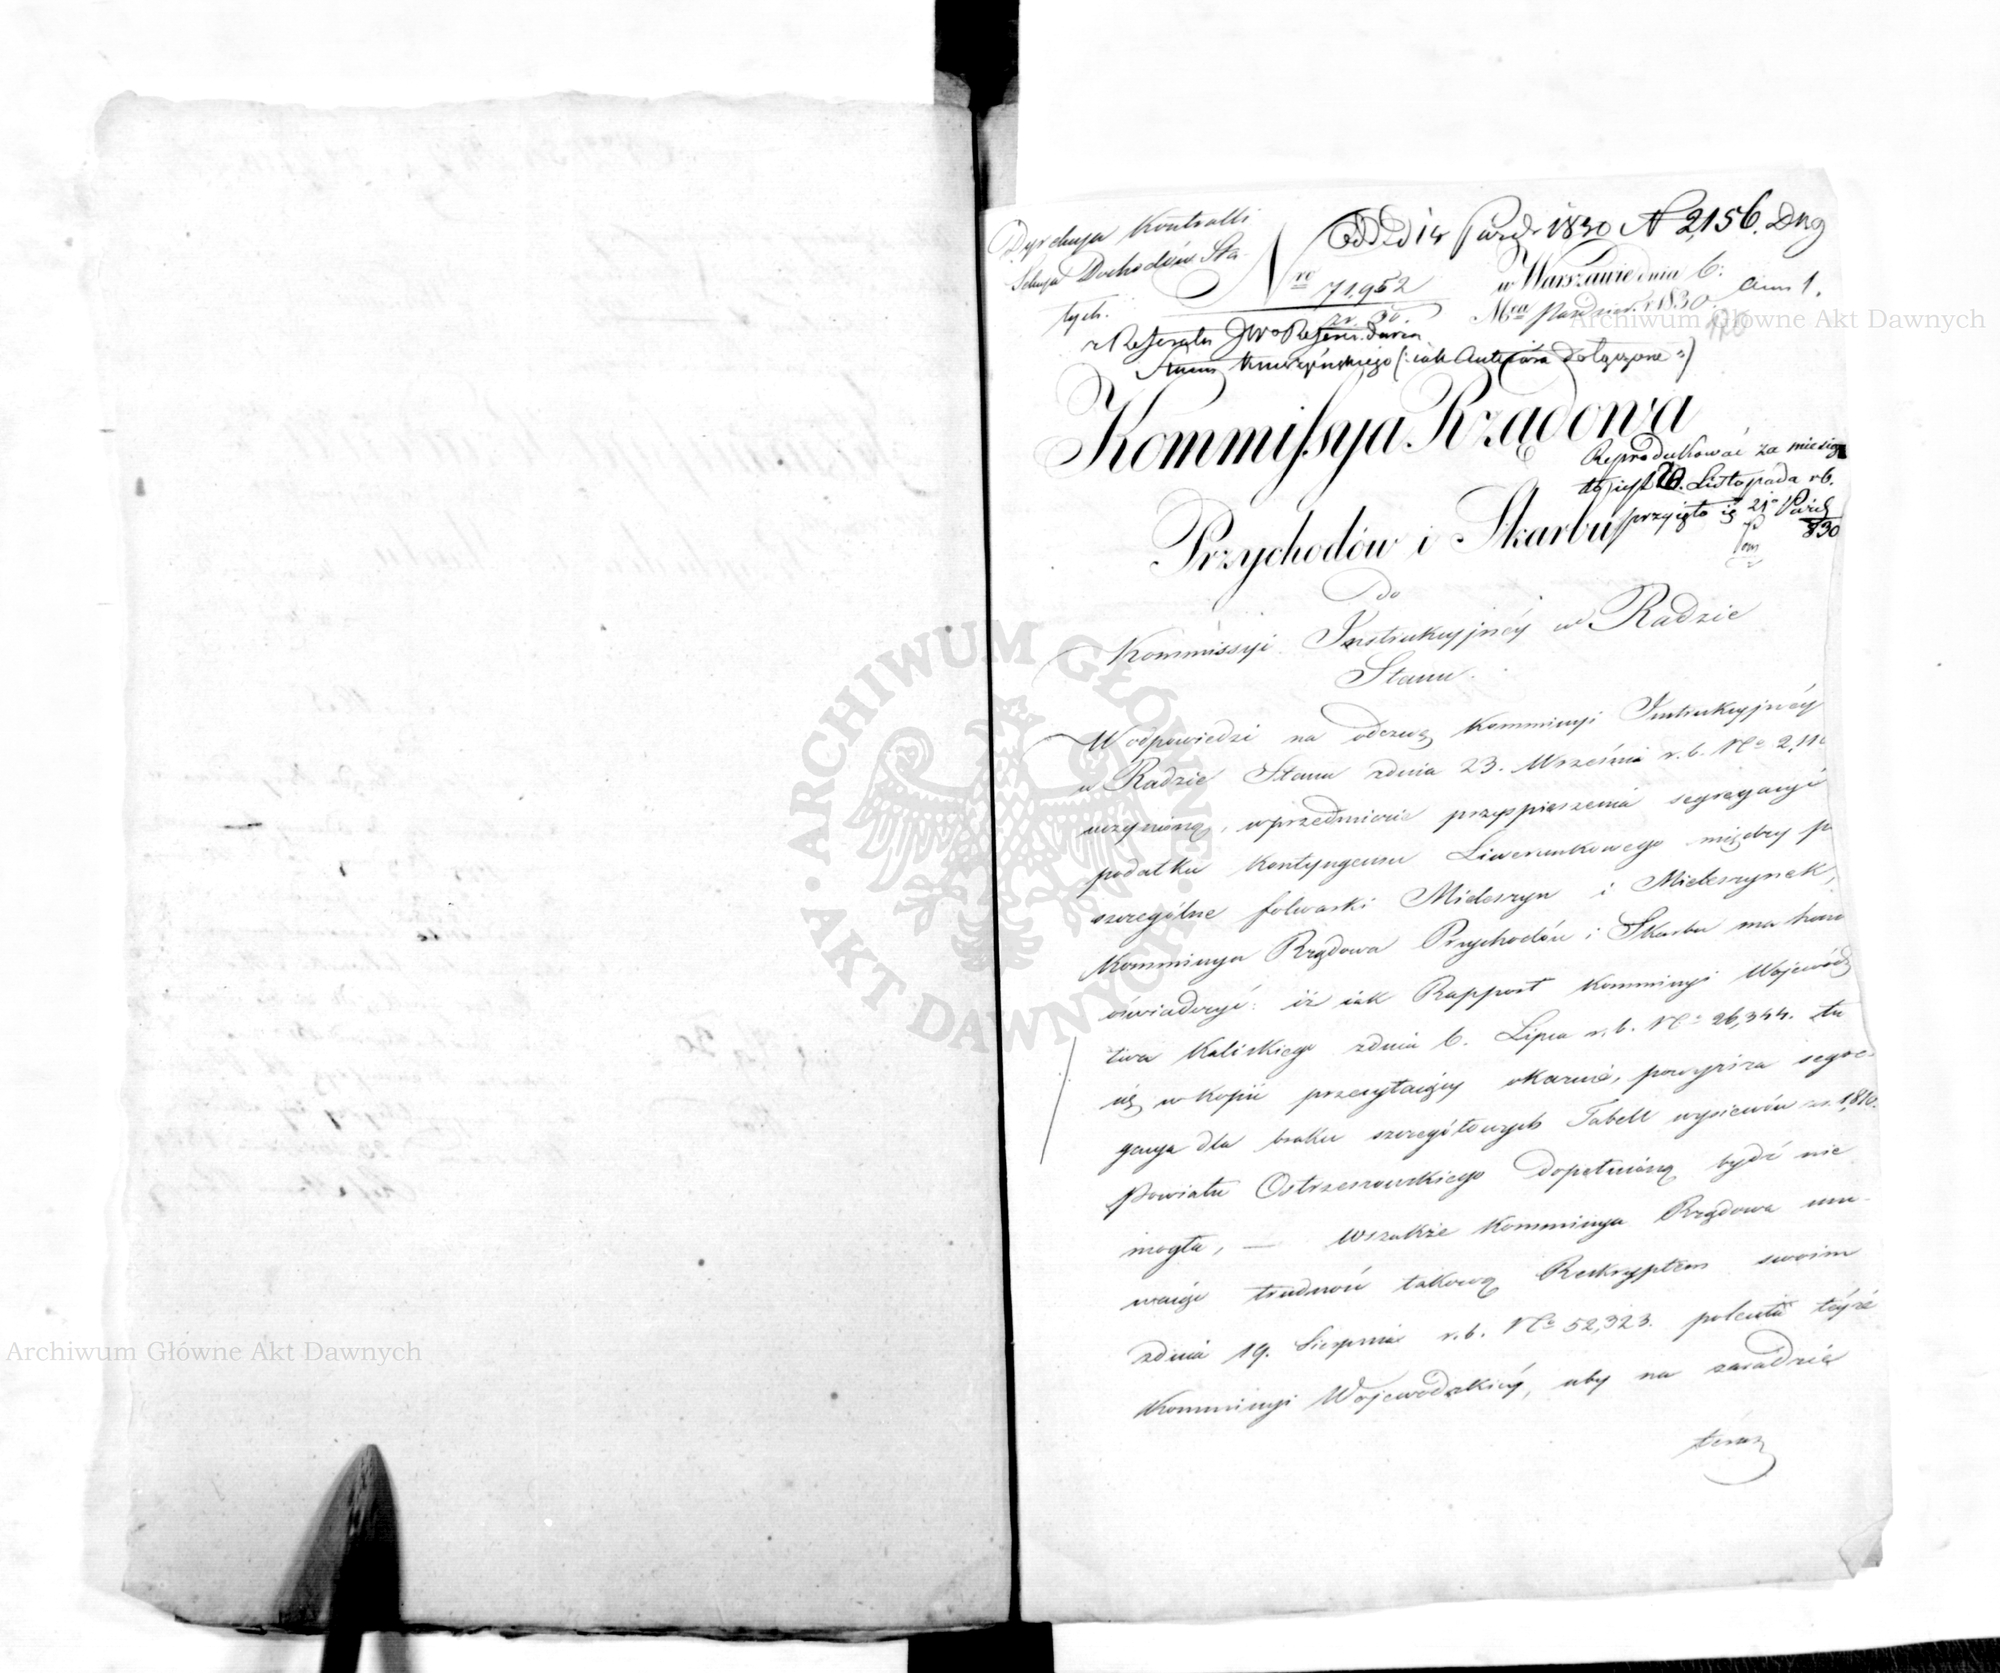 Dyrekcya Kontrolli
Sekcya Dochodów Sta-
łych.
Odd d 14 Paźdr 1830 N 2,156. Dng
Nro 71952
w Warszawie dnia 6.
Mca Paździer. r 1830.
Ann 1.
z Referatu JWo Referendarza
Stanu (: iak Anteriora dołączone :)
Kommissya Rządowa
Przychodów i Skarbu
Reprodukować za miesiąc
to jest 20. Listopada rb.
przyięto is 21o Paźd
830
do
Kommissyi Instrukcyjnéy w Radzie
Stanu.
W odpowiedzi na odezwę Kommissyi Instrukcyjnéy
w Radzie Stanu zdnia 23. Września r. b. No 2,11
uczynioną, w przedmiocie przyspieszenia segregacyi
podatku Kontyngensu Liwerunkowego między po
szczególne folwarki Mieleszyn i Mieleszynek,
Kommissya Rządowa Przychodów i Skarbu ma honor
oświadczyć: iż iak Rapport Kommissyi Wojewódz
twa Kaliskiego zdnia 6. Lipca r. b. No 26,344. tu
się w kopii przesyłaiący okazuie, powyższa segre-
gacya dla braku szczegółowych Tabell wysiewów z r. 1,810.
Powiatu Ostrzeszowskiego dopełnioną bydź nie
mogła, — wszakże Kommissya Rządowa usu-
waiąc trudność takową Reskryptem swoim
zdnia 19. Sierpnia r. b. No 52,323. poleciła téyże
Kommissyi Wojewódzkiéy, aby na zasadzie
teraz
Archiwum Główne Akt Dawnych
Archiwum Główne Akt Dawnych
ARCHIWUM GŁÓWNE · AKT DAWNYCH ·